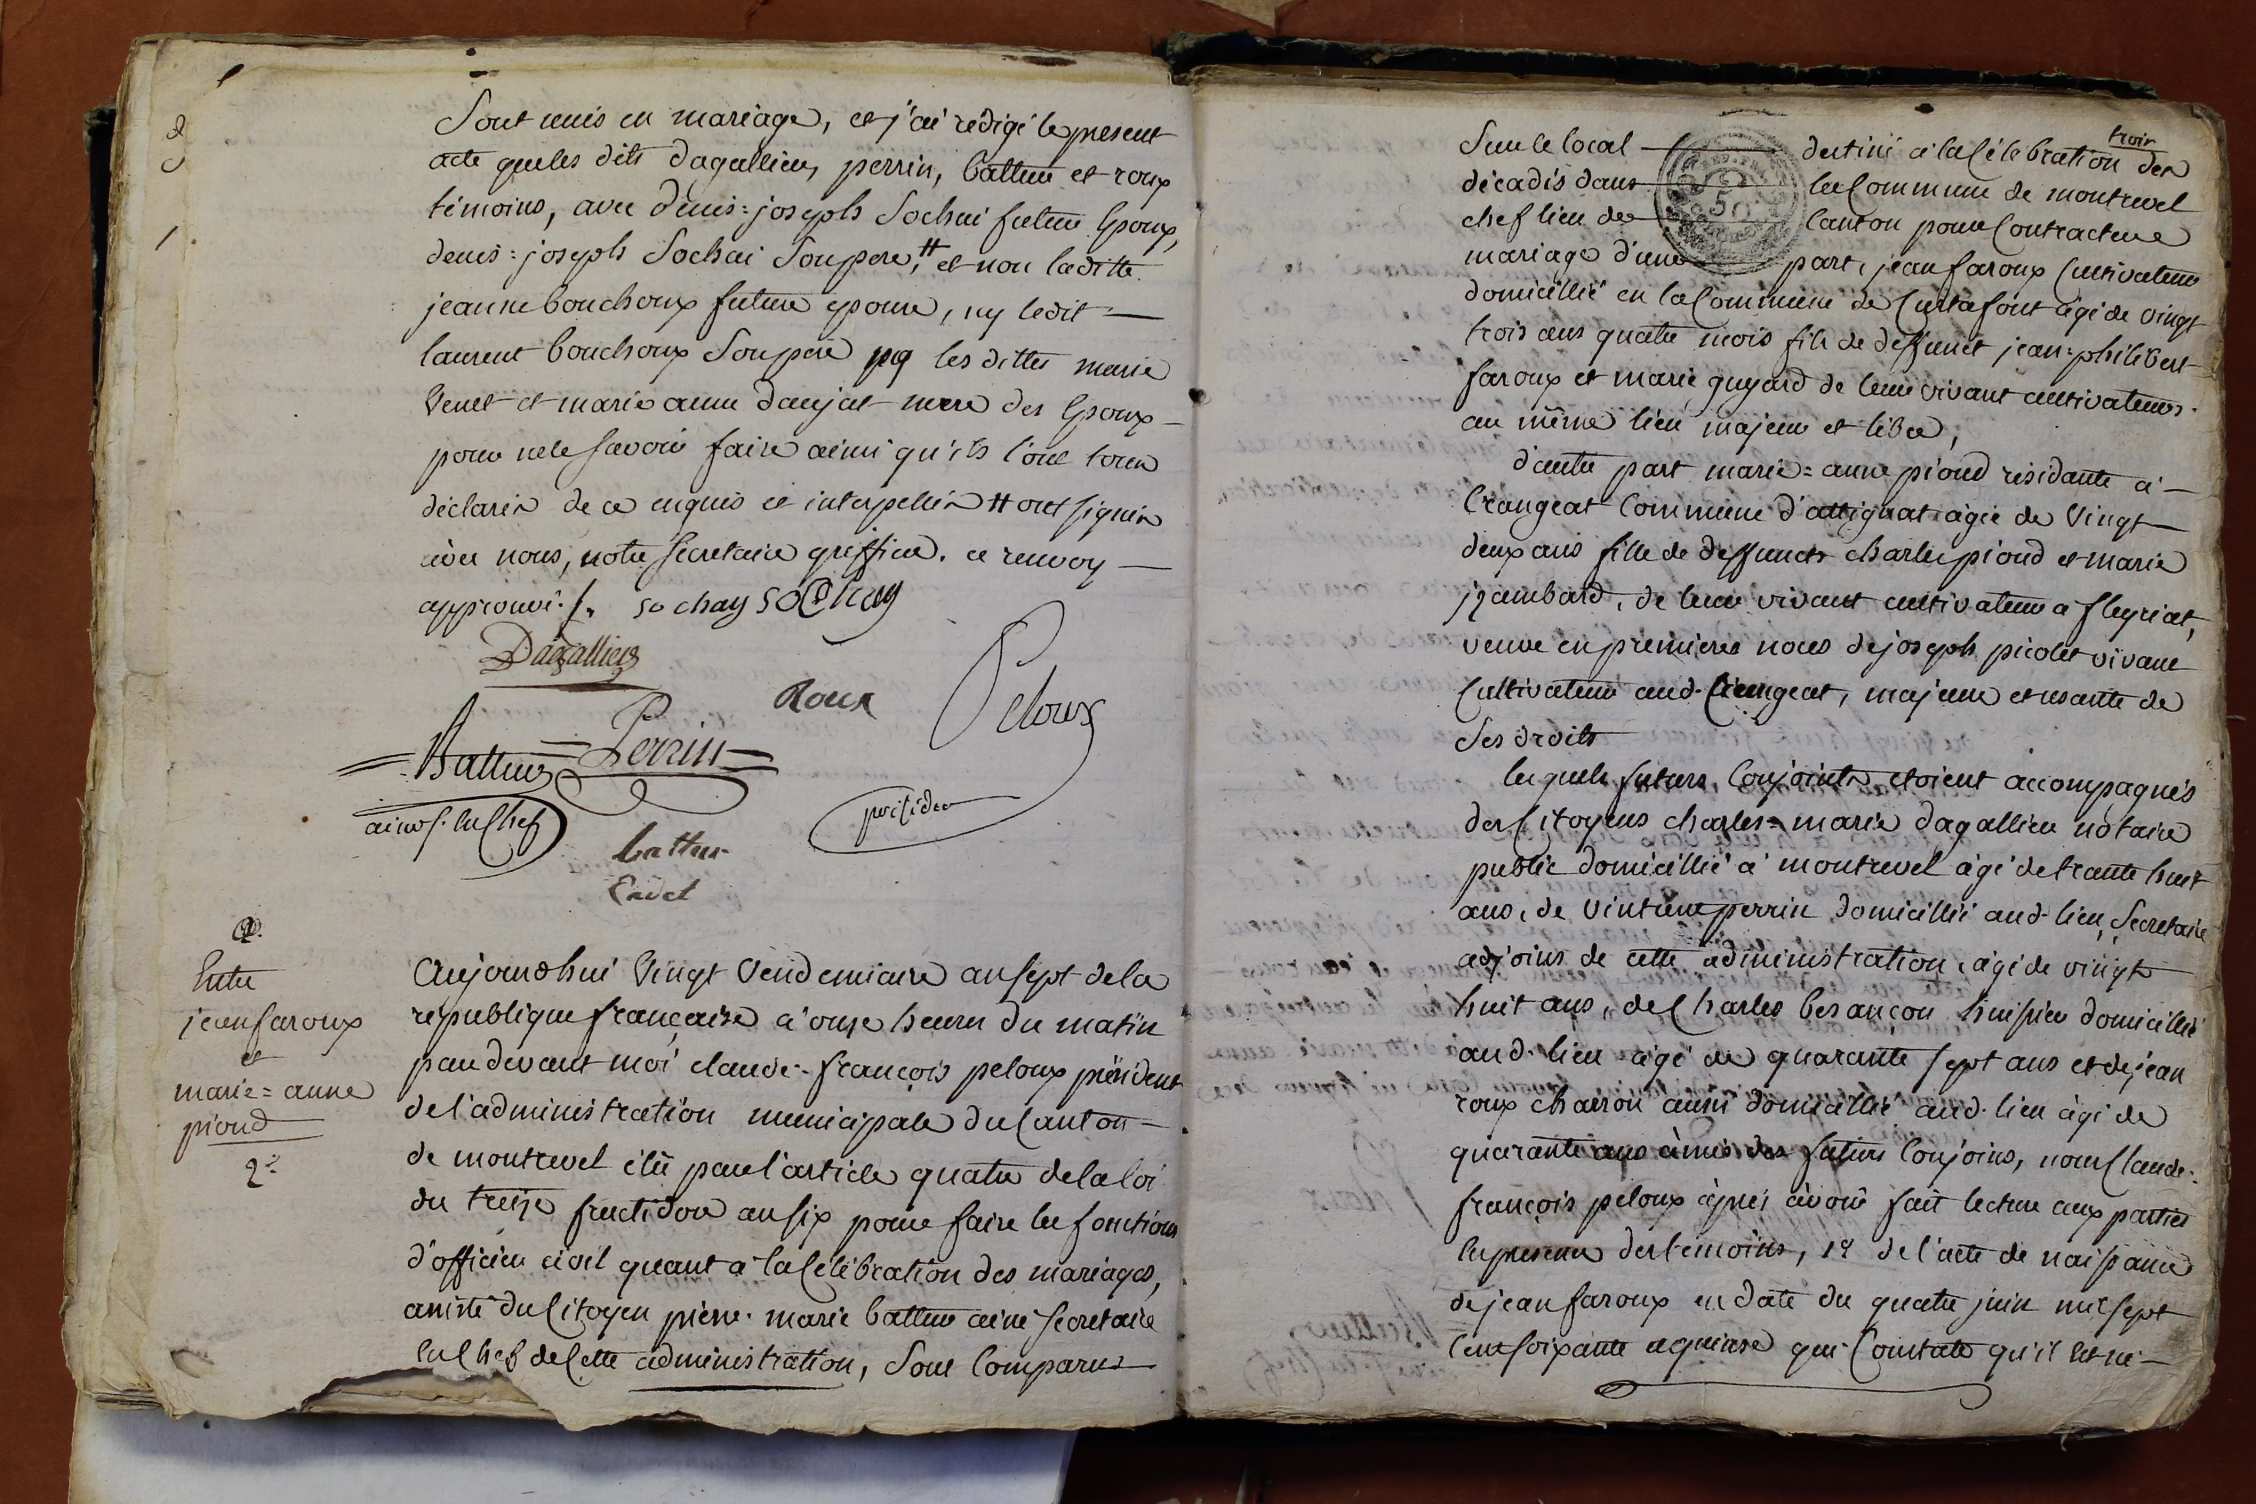 Sont unis en mariage, et j'ai rédigé le présent
acte que les dits dagallier, perrin, battur et roux
témoins, avec denis=joseph Sochai futur Epoux,
denis=joseph Sochai Son pere, # et non laditte
jeanne bouchoux future epouse, ny ledit —
laurent bouchoux Son pere les dittes marie
Venet et marie anne daujat mere des Epoux —
pour ne le savoir faire ainsi qu'ils l'ont tous
déclarés de ce enquis et interpellés # ont signés
avec nous, notre secretaire greffier. ce renvoy —
approuvé ./. sochay sochay
Dagallier
Roux
Peloux
Battur Perrin
ainé s. en chef
président
battur
Cadet
2.
Entre
jean faroux
et
marie=anne
pioud
2e
Aujourdhui Vingt Vendemiaire an sept de la
république française à onze heures du matin
par devant moi claude-françois peloux président
de l'administration municipale du Canton —
de montrevel élû par l'article quatre de la loi
du treize fructidor an six pour faire les fonctions
d'officier civil quant à la Célébration des mariages,
assisté du Citoyen pierre-marie battur ainé secretaire
En Chef de Cette administration, Sont Comparus
trois
Sur le local — destiné à la Célébration des
décadis dans — la Commune de montrevel
chef lieu de — Canton pour Contracter
mariage d'une part, jean faroux Cultivateur
domicillié en la Commune de Curtafont âgé de vingt
trois ans quatre mois fils de deffunct jean=philibert
faroux et marie guyard de leur vivant cultivateurs
au même lieu majeur et libre,
d'autre part marie=anne pioud residante à —
Crangeat Commune d'attignat agée de Vingt —
deux ans fille de deffuncts charles pioud et marie
jzambard, de leur vivant cultivateurs a fleyriat,
veuve en premieres noces de joseph picolet vivant
Cultivateur aud. Crangeat, majeure et usante de
Ses droits
lesquels futurs Conjoints etoient accompagnés
des Citoyens charles=marie dagallier notaire
public domicillié à montrevel âgé de trante huit
ans, de perrin domicillié aud. lieu, Secretaire
adjoins de cette administration, âgé de vingt
huit ans, de Charles besançon huissier domicillié
aud. lieu âgé de quarante sept ans et de jean
roux charron aussi domicillié aud. lieu âgé de
quarante ans amis des futurs Conjoins, nous Claude-
françois peloux après avoir fait lecture aux parties
En presence des temoins, 1º de l'acte de naissance
de jean faroux en date du quatre juin mil sept
Cent soixante et quinze qui Constate qu'il est né —